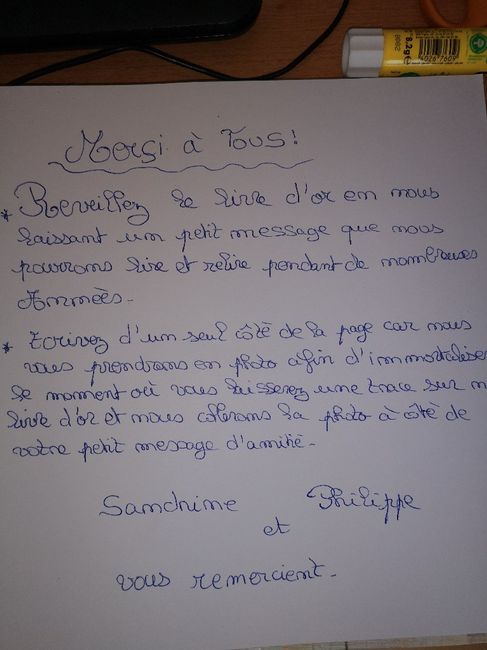 8.2g℮
Mersi à Tous!
* Reveillez le livre d'or en nous
laissant un petit message que nous
pourrons lire et relire pendant de nombreuses
Années.
* Ecrivez d'un seul côté de la page car nous
vous prendrons en photo afin d'immortaliser
le moment où vous laisserez une trace sur
livre d'or et nous collerons la photo à côté de
votre petit message d'amitié.
Sandrine Philippe
et
vous remercient.